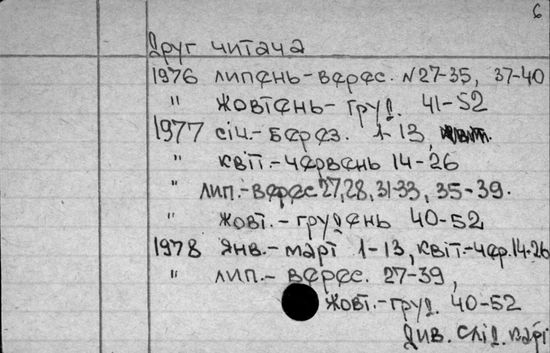 6
Друг читача
1976 липень-верес. N27-35, 37-40
" жовтень-груд. 41-52
1977 січ.-берез. 1-13,
" квіт.-червень 14-26
" лип.-верес. 27,28, 31-33, 35-39.
" жовт.-грудень 40-52
1978 янв.-март 1-13, квіт.-чер. 14-26
" лип.-верес. 27-39,
жовт.-груд. 40-52
Див. слід. карт